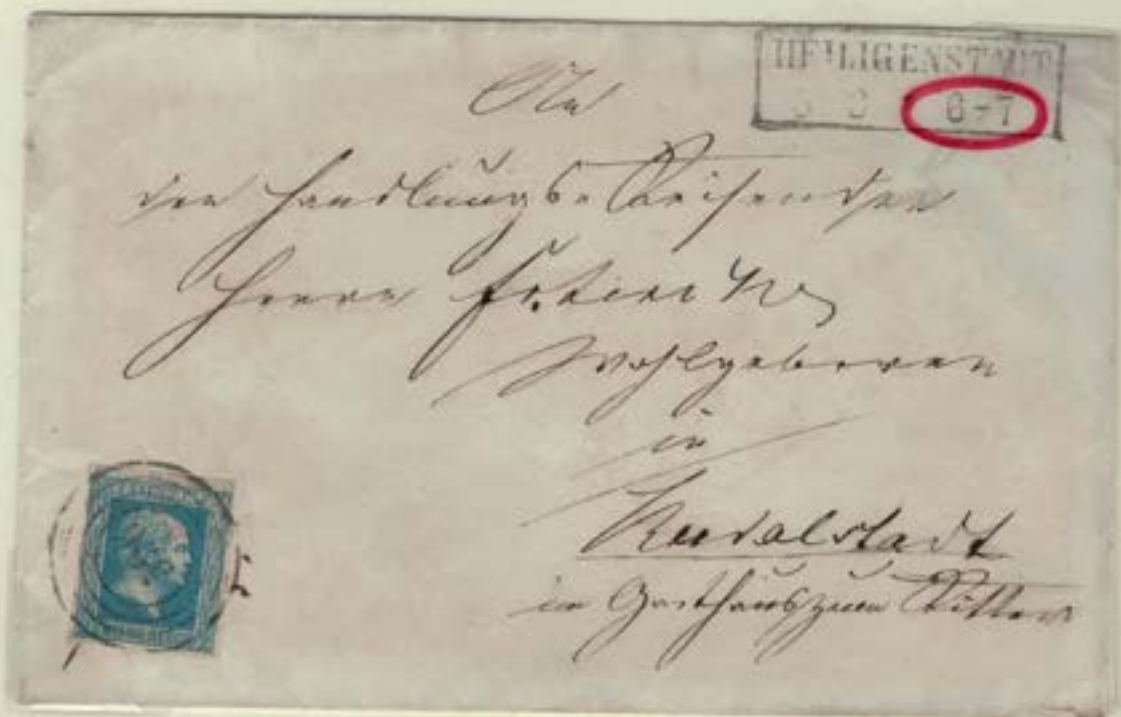 HEILIGENSTADT
2 6-7
An
den Handlungs-Reisenden
Herrn
Wohlgeboren
in
Rudolstadt
im Gasthaus zum Ritter